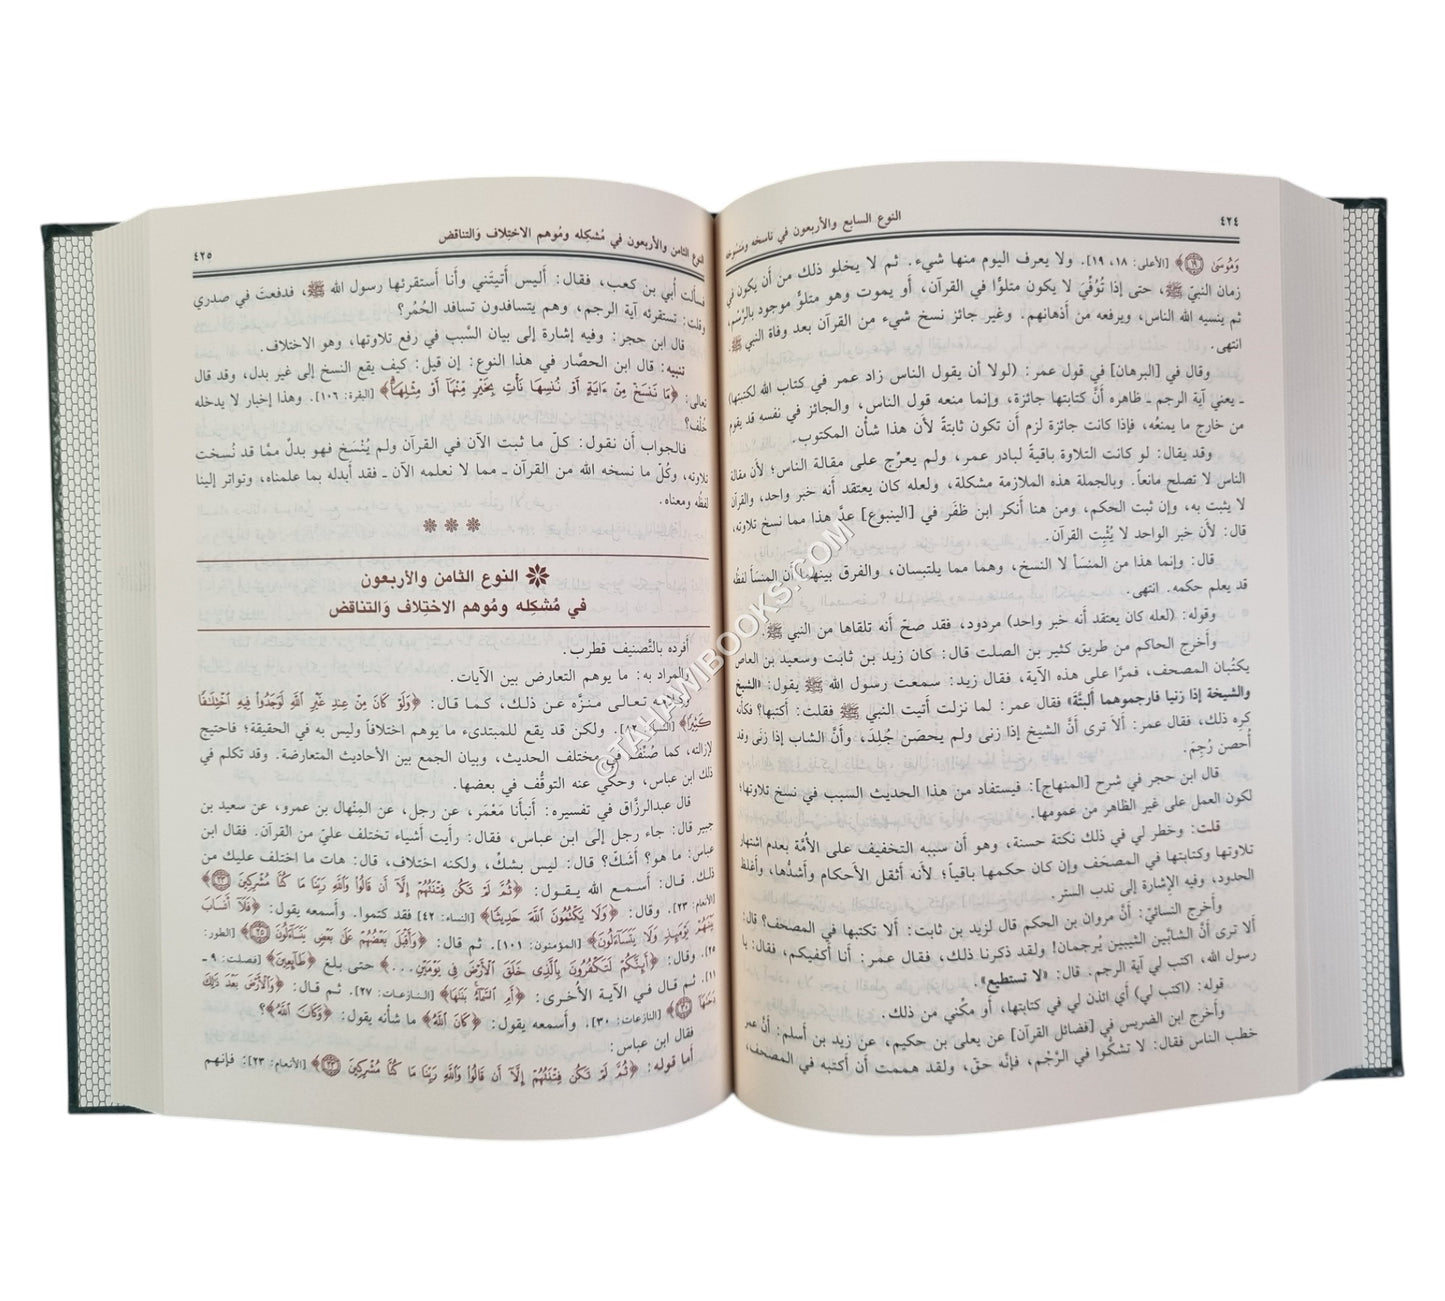 ٤٢٤
النوع السابع والأربعون في ناسخه ومنسوخه
وَمُوسَىٰ ﴿١٩﴾ [الأعلى: ١٨، ١٩]. ولا يعرف اليوم منها شيء. ثم لا يخلو ذلك من أن يكون في
زمان النبيّ ﷺ، حتى إذا تُوُفِّيَ لا يكون متلوًّا في القرآن، أو يموت وهو متلوٌّ موجود بالرَّسْم،
ثم ينسيه الله الناس، ويرفعه من أذهانهم. وغير جائز نسخ شيء من القرآن بعد وفاة النبي ﷺ
انتهى.
وقال في [البرهان] في قول عمر: (لولا أن يقول الناس زاد عمر في كتاب الله لكتبتها)
ـ يعني آية الرجم ـ ظاهره أنَّ كتابتها جائزة، وإنما منعه قول الناس، والجائز في نفسه قد يقوم
من خارج ما يمنعُه، فإذا كانت جائزة لزم أن تكون ثابتةً لأن هذا شأن المكتوب.
وقد يقال: لو كانت التلاوة باقيةً لبادر عمر، ولم يعرِّج على مقالة الناس؛ لأن مقالة
الناس لا تصلح مانعاً. وبالجملة هذه الملازمة مشكلة، ولعله كان يعتقد أنه خبر واحد، والقرآن
لا يثبت به، وإن ثبت الحكم، ومن هنا أنكر ابن ظفَر في [الينبوع] عدَّ هذا مما نسخ تلاوته،
قال: لأن خبر الواحد لا يُثْبِت القرآن.
قال: وإنما هذا من المنسَأ لا النسخ، وهما مما يلتبسان، والفرق بينهما أن المنسَأ لفظُه
قد يعلم حكمه. انتهى.
وقوله: (لعله كان يعتقد أنه خبر واحد) مردود، فقد صحّ أنه تلقاها من النبي ﷺ.
وأخرج الحاكم من طريق كثير بن الصلت قال: كان زيد بن ثابت وسعيد بن العاص
يكتُبان المصحف، فمرَّا على هذه الآية، فقال زيد: سمعت رسول الله ﷺ يقول: «الشيخ
والشيخة إذا زنيا فارجموهما ألبتَّة» فقال عمر: لما نزلت أتيت النبي ﷺ فقلت: أكتبها؟ فكأنه
كره ذلك، فقال عمر: ألاَ ترى أنَّ الشيخ إذا زنى ولم يحصَن جُلِدَ، وأنَّ الشاب إذا زنى وقد
أُحصن رُجِمَ.
قال ابن حجر في شرح [المنهاج]: فيستفاد من هذا الحديث السبب في نسخ تلاوتها؛
لكون العمل على غير الظاهر من عمومها.
قلت: وخطر لي في ذلك نكتة حسنة، وهو أن سببه التخفيف على الأمَّة بعدم اشتهار
تلاوتها وكتابتها في المصحَف وإن كان حكمها باقياً؛ لأنه أثقل الأحكام وأشدُّها، وأغلظ
الحدود، وفيه الإشارة إلى ندب الستر.
وأخرج النسائيّ: أنَّ مروان بن الحكم قال لزيد بن ثابت: ألا تكتبها في المصحف؟ قال:
ألا ترى أنَّ الشابَّين الثيبين يُرجمان! ولقد ذكرنا ذلك، فقال عمر: أنا أكفيكم، فقال: يا
رسول الله، اكتب لي آية الرجم. قال: «لا تستطيع».
قوله: (اكتب لي) أي ائذن لي في كتابتها، أو مكِّني من ذلك.
وأخرج ابن الضريس في [فضائل القرآن] عن يعلى بن حكيم، عن زيد بن أسلم: أنَّ عمر
خطب الناس فقال: لا تشكُّوا في الرَّجْم، فإنَّه حقّ، ولقد هممت أن أكتبه في المصحف،
النوع الثامن والأربعون في مُشكِله ومُوهم الاختِلاف وَالتناقض
٤٢٥
فسألت أُبي بن كعب، فقال: أليس أتيتَني وأنا أستقرئها رسول الله ﷺ، فدفعتَ في صدري
وقلت: تستقرئه آية الرجم، وهم يتسافدون تسافد الحُمُر؟
قال ابن حجر: وفيه إشارة إلى بيان السَّبب في رفع تلاوتها، وهو الاختلاف.
تنبيه: قال ابن الحصَّار في هذا النوع: إن قيل: كيف يقع النسخ إلى غير بدل، وقد قال
تعالى: ﴿مَا نَنسَخْ مِنْ ءَايَةٍ أَوْ نُنسِهَا نَأْتِ بِخَيْرٍ مِّنْهَآ أَوْ مِثْلِهَآ﴾ [البقرة: ١٠٦]. وهذا إخبار لا يدخله
خُلْف؟
فالجواب أن نقول: كلّ ما ثبت الآن في القرآن ولم يُنْسَخ فهو بدلٌ ممَّا قد نُسخت
تلاوته، وكُلّ ما نسخه الله من القرآن ـ مما لا نعلمه الآن ـ فقد أبدله بما علمناه، وتواتر إلينا
لفظُه ومعناه.
النوع الثامن والأربعون
في مُشكِله ومُوهم الاختِلاف وَالتناقض
أفرده بالتَّصنيف قطرب.
والمراد به: ما يوهم التعارض بين الآيات.
وكلامه تعالى منزَّه عن ذلك، كما قال: ﴿وَلَوْ كَانَ مِنْ عِندِ غَيْرِ ٱللَّهِ لَوَجَدُوا۟ فِيهِ ٱخْتِلَـٰفًا
كَثِيرًا﴾ [النساء: ٨٢]. ولكن قد يقع للمبتدىء ما يوهم اختلافاً وليس به في الحقيقة؛ فاحتيج
لإزالته، كما صُنِّفَ في مختلف الحديث، وبيان الجمع بين الأحاديث المتعارضة. وقد تكلم في
ذلك ابن عباس، وحكي عنه التوقُّف في بعضها.
قال عبدالرزَّاق في تفسيره: أنبأنا مَعْمَر، عن رجل، عن المِنْهال بن عمرو، عن سعيد بن
جبير قال: جاء رجل إلى ابن عباس، فقال: رأيت أشياء تختلف عليّ من القرآن. فقال ابن
عباس: ما هو؟ أشَكّ؟ قال: ليس بشكّ، ولكنه اختلاف، قال: هات ما اختلف عليك من
ذلك. قال: أسمع الله يقول: ﴿ثُمَّ لَمْ تَكُن فِتْنَتُهُمْ إِلَّآ أَن قَالُوا۟ وَٱللَّهِ رَبِّنَا مَا كُنَّا مُشْرِكِينَ ﴿٢٣﴾﴾
[الأنعام: ٢٣]. وقال: ﴿وَلَا يَكْتُمُونَ ٱللَّهَ حَدِيثًا﴾ [النساء: ٤٢] فقد كتموا. وأسمعه يقول: ﴿فَلَآ أَنسَابَ
بَيْنَهُمْ يَوْمَئِذٍ وَلَا يَتَسَآءَلُونَ﴾ [المؤمنون: ١٠١]. ثم قال: ﴿وَأَقْبَلَ بَعْضُهُمْ عَلَىٰ بَعْضٍ يَتَسَآءَلُونَ ﴿٢٥﴾﴾ [الطور:
٢٥]. وقال: ﴿أَئِنَّكُمْ لَتَكْفُرُونَ بِٱلَّذِى خَلَقَ ٱلْأَرْضَ فِى يَوْمَيْنِ...﴾ حتى بلغ ﴿طَآئِعِينَ﴾ [فصلت: ٩ ـ
١١]. ثم قال في الآية الأخرى: ﴿أَمِ ٱلسَّمَآءُ بَنَىٰهَا﴾ [النازعات: ٢٧]. ثم قال: ﴿وَٱلْأَرْضَ بَعْدَ ذَٰلِكَ
دَحَىٰهَآ ﴿٣٠﴾﴾ [النازعات: ٣٠]. وأسمعه يقول: ﴿كَانَ ٱللَّهُ﴾ ما شأنه يقول: ﴿وَكَانَ ٱللَّهُ﴾؟
فقال ابن عباس:
أما قوله: ﴿ثُمَّ لَمْ تَكُن فِتْنَتُهُمْ إِلَّآ أَن قَالُوا۟ وَٱللَّهِ رَبِّنَا مَا كُنَّا مُشْرِكِينَ ﴿٢٣﴾﴾ [الأنعام: ٢٣]: فإنهم
©TAHAWIBOOKS.COM